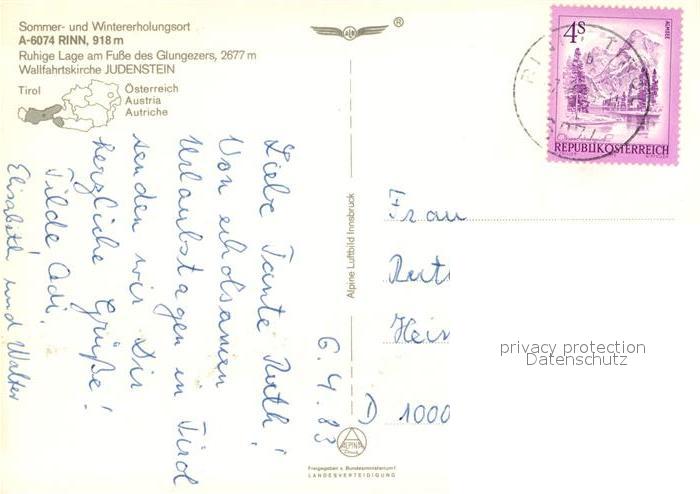 Sommer- und Wintererholungsort
A-6074 RINN, 918 m
Ruhige Lage am Fuße des Glungezers, 2677 m
Wallfahrtskirche JUDENSTEIN
Tirol
Österreich
Austria
Autriche
®
4S
ALMSEE
REPUBLIK ÖSTERREICH
6.4.83
Liebe Tante Ruth!
Von erholsamen
Urlaubstagen in Tirol
senden wir Dir
herzliche Grüße!
Tilde Adi,
Elisabeth und Walter
Alpine Luftbild Innsbruck
Frau
Ruth
Hein
D 1000
privacy protection
Datenschutz
ALPINA
Druck
Freigegeben v. Bundesministerium f.
LANDESVERTEIDIGUNG